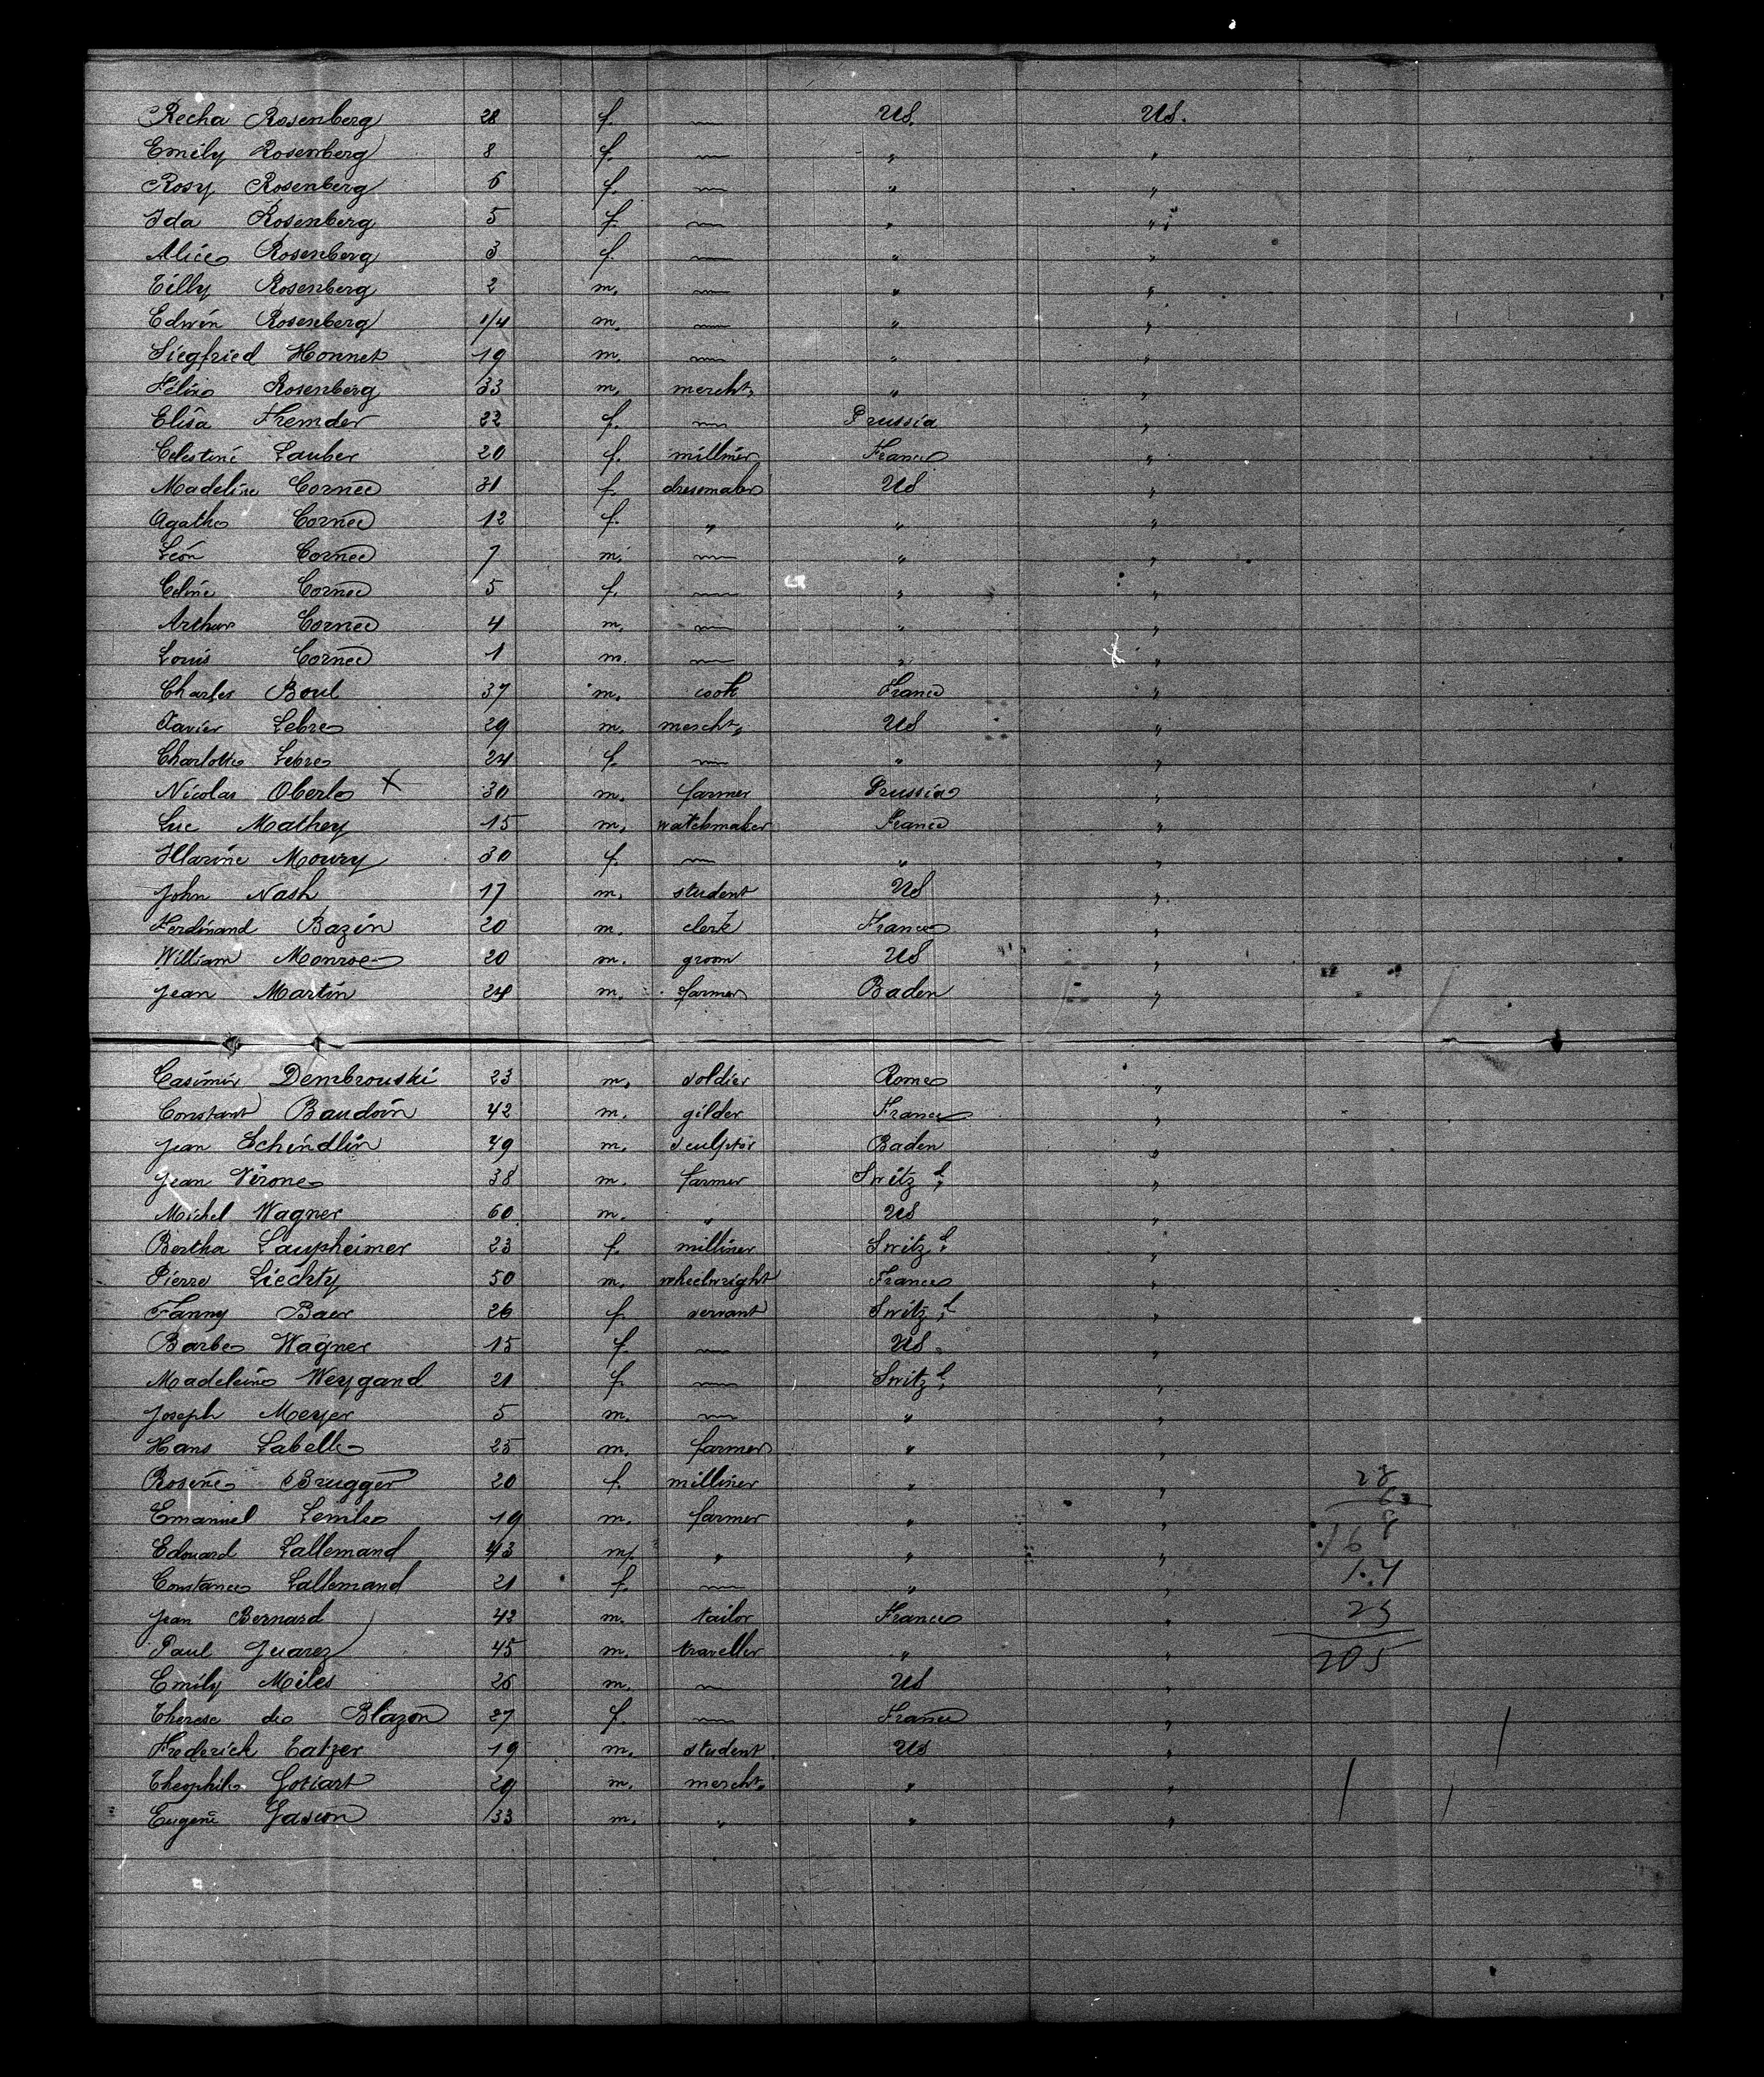 Recha Rosenberg 28 f. — US. US.
Emily Rosenberg 8 f. — " "
Rosy Rosenberg 6 f. — " "
Ida Rosenberg 5 f. — " "
Alice Rosenberg 3 f. — " "
Tilly Rosenberg 2 m. — " "
Edwin Rosenberg 1/4 m. — " "
Siegfried Honnet 19 m. — " "
Félix Rosenberg 33 m. mercht. " "
Elisa Fremder 22 f. — Prussia "
Celestine Lauber 20 f. milliner France "
Madeline Cornec 31 f. dressmaker US "
Agathe Cornec 12 f. " " "
Léon Cornec 7 m. — " "
Celine Cornec 5 f. — " "
Arthur Cornec 4 m. — " "
Louis Cornec 1 m. — " "
Charles Boul 37 m. cook France "
Xavier Lebre 29 m. mercht. US "
Charlotte Lebre 24 f. — " "
Nicolas Oberle X 30 m. farmer Prussia "
Luc Mathey 15 m. watchmaker France "
Marine Moury 30 f. — " "
John Nash 17 m. student US "
Ferdinand Bazin 20 m. clerk France "
William Monroe 20 m. groom US "
Jean Martin 24 m. farmer Baden "
Casimir Dembrouski 23 m. soldier Rome "
Constant Baudoin 42 m. gilder France "
Jean Schindlin 49 m. sculptor Baden "
Jean Virone 38 m. farmer Switz.d "
Michel Wagner 60 m. " US "
Bertha Laupheimer 23 f. milliner Switz.d "
Pierre Liechty 50 m. wheelwright France "
Fanny Baer 26 f. servant Switz.d "
Barbe Wagner 15 f. — US. "
Madeleine Weygand 21 f. — Switz.d "
Joseph Meyer 5 m. — " "
Hans Labelle 25 m. farmer " "
Rosine Brugger 20 f. milliner " " 28
Emanuel 19 m. farmer " "
Edouard Lallemand 43 m. " " " 16
Constance Lallemand 21 f. — " "
Jean Bernard 42 m. tailor France " 25
Paul Juarez 45 m. traveller " " 205
Emily Miles 26 m. — US "
Therese de Blazon 27 f. — France "
Frederick Tatzer 19 m. student US "
Theophile Gotiart 29 m. mercht. " "
Eugene Gascon 33 m. " " "